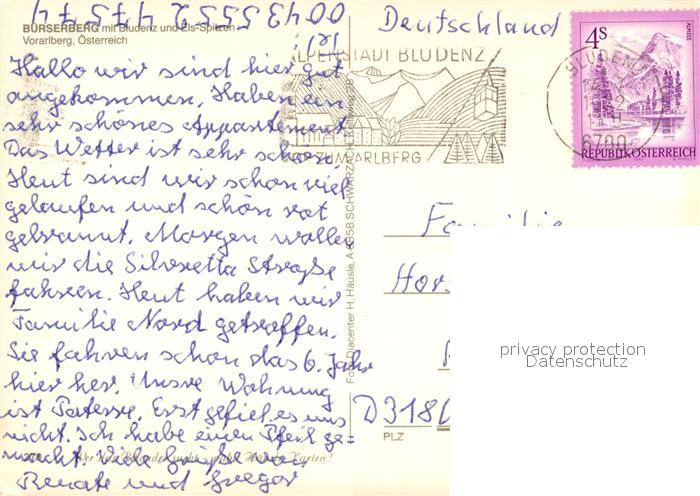 0043 5552 47574
Tel.
BÜRSERBERG mit Bludenz und Els-Spitzen
Vorarlberg, Österreich
Hallo wir sind hier gut
angekommen, Haben ein
sehr schönes Appartement.
Das Wetter ist sehr schön.
Heut sind wir schon viel
gelaufen und schön rot
gebrannt. Morgen wollen
wir die Silvretta Straße
fahren. Heut haben wir
Familie Nord getroffen.
Sie fahren schon das 6. Jahr
hier her. Unsre Wohnung
ist Paterre. Erst gefiel es uns
nicht. Ich habe einen Pfeil ge-
macht. Viele Grüße von
Renate und Gregor
Foto Diacenter H. Häusle, A 6858 SCHWARZACH
Deutschland
ALPENSTADT BLUDENZ
VORARLBERG
BLUDENZ
6700
4 S
ALMSEE
REPUBLIK ÖSTERREICH
Familie
D318
PLZ
privacy protection
Datenschutz